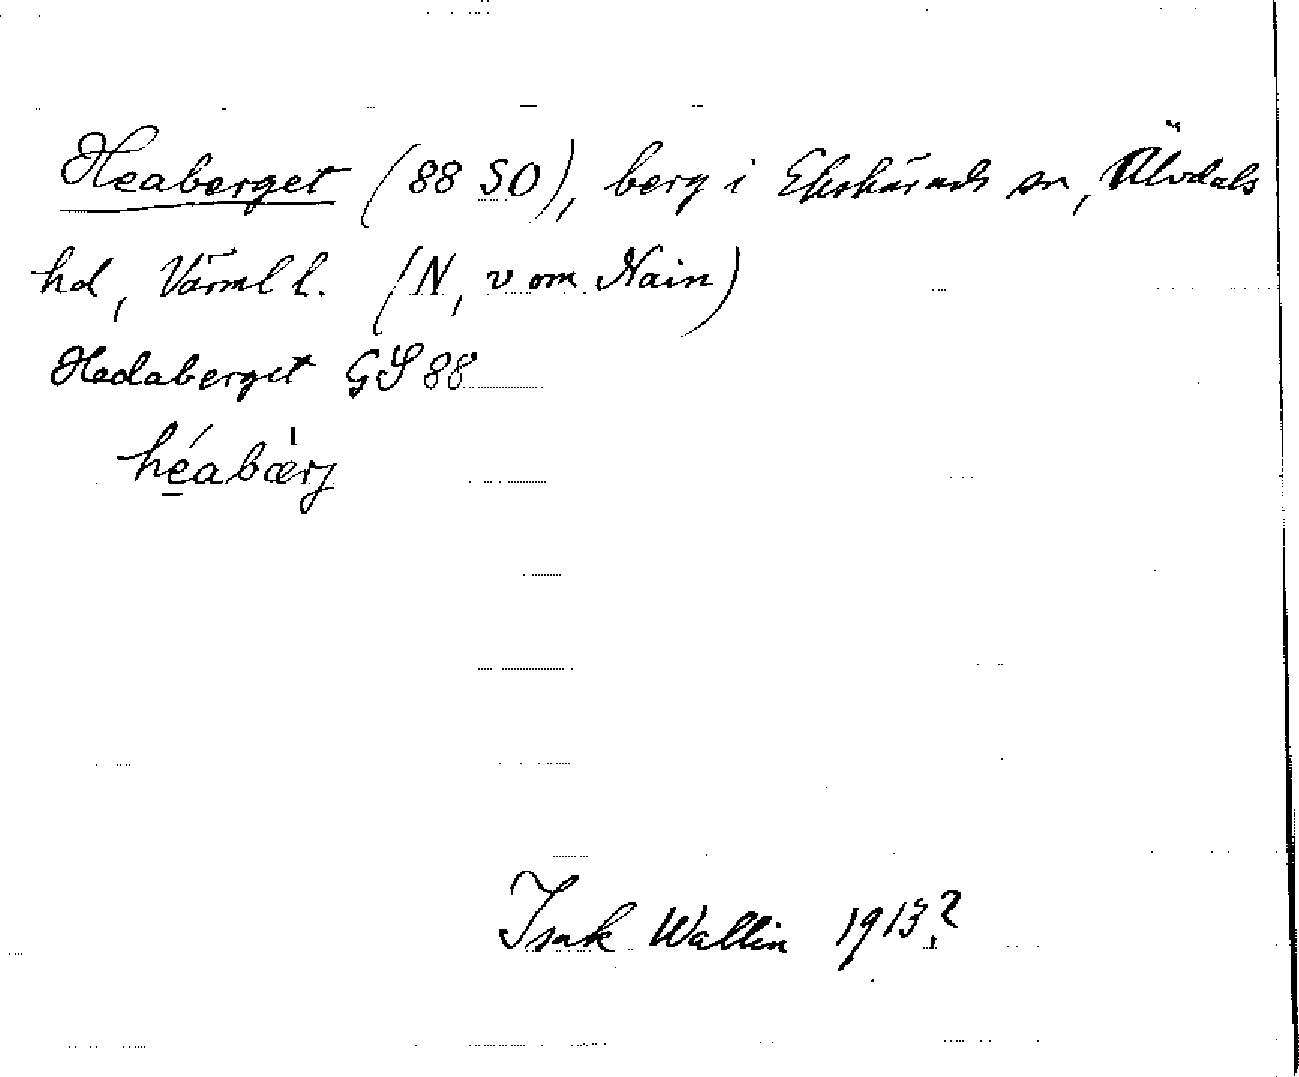 Heaberget (88 SO), berg i Ekshärads sn, Älvdals
hd, Värml l. (N, v om Nain)
Hedaberget GS 88
héabærj
Isak Wallin 1913?